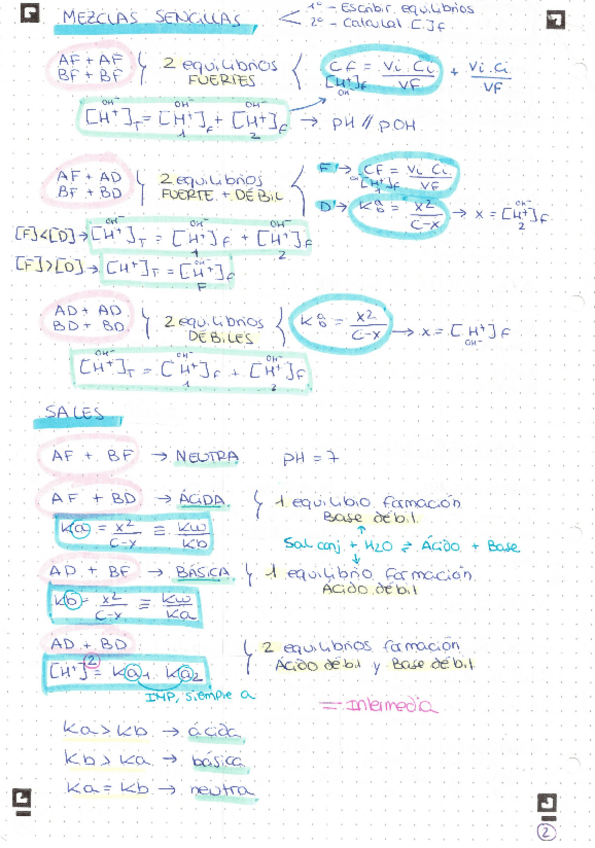 MEZCLAS SENCILLAS
1º - Escribir equilibrios
2º - Calcular [ ]f
AF + AF
BF + BF
2 equilibrios
FUERTES
CF = Vi. Ci / VF + Vi.Ci / VF
[H+]f
OH
OH- OH- OH-
[H+]T = [H+]f + [H+]f → pH // pOH
1 2
AF + AD
BF + BD
2 equilibrios
FUERTE + DÉBIL
F → CF = Vi Ci / VF
OH- [H+]f
D → K a b = x2 / C-x → x = [H+]f
OH-
2
[F]<[D] → [H+]T = [H+]f + [H+]f
OH- OH- OH-
1 2
[F]>[D] → [H+]T = [H+]f
OH- OH-
F
AD + AD
BD + BD
2 equilibrios
DÉBILES
K a b = x2 / C-x → x = [H+]f
OH-
OH- OH- OH-
[H+]T = [H+]f + [H+]f
1 2
SALES
AF + BF → NEUTRA pH = 7
AF + BD → ÁCIDA
1 equilibrio formación
Base débil
Ka = x2 / C-x ≡ Kw / Kb
Sal conj. + H2O ⇌ Ácido + Base
AD + BF → BÁSICA
1 equilibrio formación
Ácido débil
Kb = x2 / C-x ≡ Kw / Ka
AD + BD
2 equilibrios formación
Ácido débil y Base débil
[H+]2 = Ka1 . Ka2
IMP, siempre a
= Intermedia
Ka > Kb → ácida
Kb > Ka → básica
Ka = Kb → neutra
2